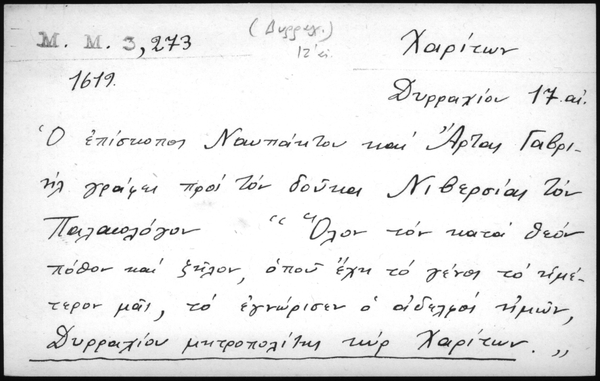 (Δυρραχ.)
M. M. 3,273 Χαρίτων
1619. Δυρραχίου 17 αἰ.
Ὁ ἐπίσκοπος Ναυπάκτου καί Ἄρτας Γαβρι-
ήλ γράφει πρός τόν δοῦκα Νιβερσίας τόν
Παλαιολόγον “Ὅλον τόν κατά θεόν
πόθον καί ζῆλον, ὁποῦ ἔχη τό γένος τό ἡμέ-
τερον μᾶς, τό ἐγνώρισεν ὁ ἀδελφός ἡμῶν,
Δυρραχίου μητροπολίτης κύρ Χαρίτων.„